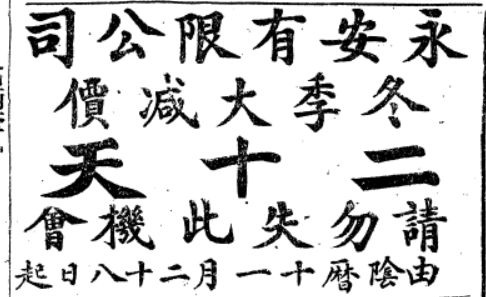 永安有限公司
冬季大減價
二十天
請勿失此機會
由陰曆十一月二十八日起